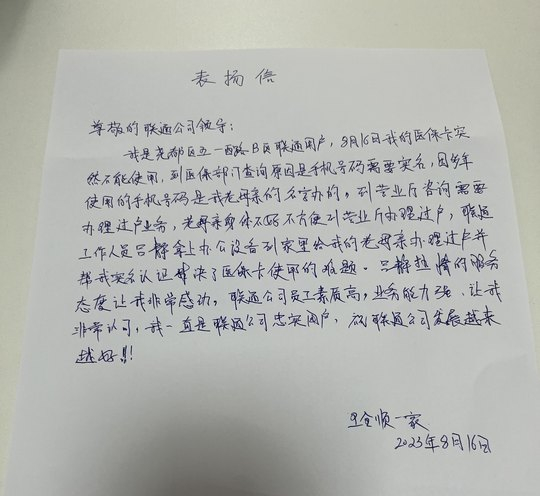 表扬信
尊敬的联通公司领导：
我是尧都区五一西路B区联通用户，8月16日我的医保卡突
然不能使用，到医保部门查询原因是手机号码需要实名，因多年
使用的手机号码是我老母亲的名字办的，到营业厅咨询需要
办理过户业务，老母亲身体不好不方便到营业厅办理过户，联通
工作人员吕静拿上办公设备到家里给我的老母亲办理过户并
帮我实名认证解决了医保卡使用的难题。吕静热情的服务
态度让我非常感动，联通公司员工素质高，业务能力强、让我
非常认可，我一直是联通公司忠实用户，祝联通公司发展越来
越好!!!
全顺一家
2023年8月16日